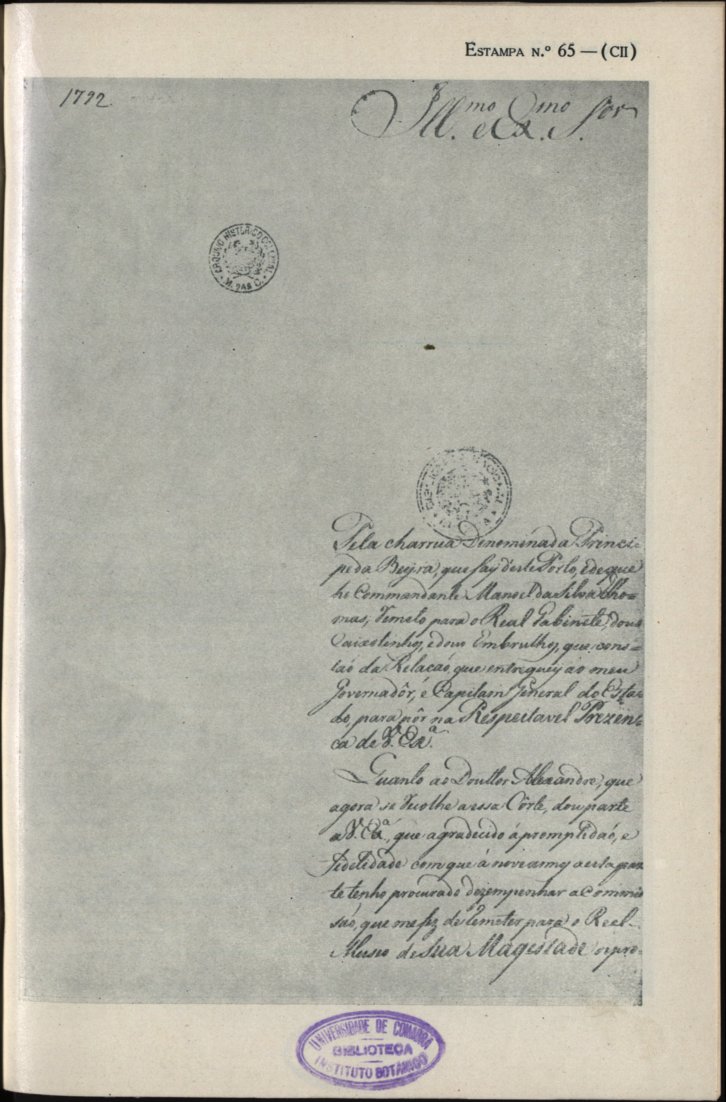 ESTAMPA N.º 65 — (CII)
1792
Ill.mo e Ex.mo S.or
ARQUIVO HISTÓRICO COLONIAL
Pela charrua Denominada Princi-
pe da Beyra, que say deste Porto, e de que
he Commandante Manoel da Silva Tho-
mas, remeto para o Real Gabinete dous
Caixotinhos, e dous Embrulhos, que cons-
taõ da Relacaõ, que entreguey ao meu
Governadôr, e Capitam General do Esta-
do, para pôr na Respeitavel Prezen-
ca de V. Ex.ª
Quanto ao Douttor Alexandre, que
agora se recolhe a essa Côrte, dou parte
a V. Ex.ª, que agradecido á promptidaõ, e
fidelidade com que á nove annos a esta par-
te tenho procurado dezempenhar a Commis-
saõ, que me fez de remeter para o Real
Museo de Sua Magestade
UNIVERSIDADE DE COIMBRA
BIBLIOTECA
INSTITUTO BOTANICO